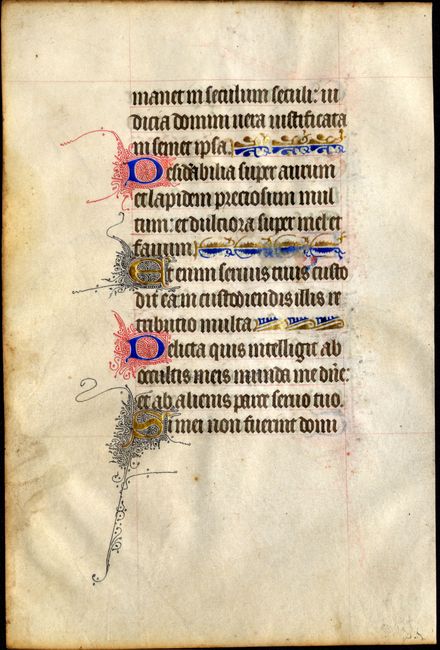 manet in seculum seculi: iu
dicia domini uera iustificata
in semet ipsa.
Desidabilia super aurum
et lapidem preciosum mul
tum: et dulciora super mel et
fauum.
Et enim seruus tuus custo
dit ea in custodiendis illis re
tributio multa
Delicta quis intelligit ab
occultis meis munda me dñe:
et ab alienis parce seruo tuo.
Si mei non fuerint domi